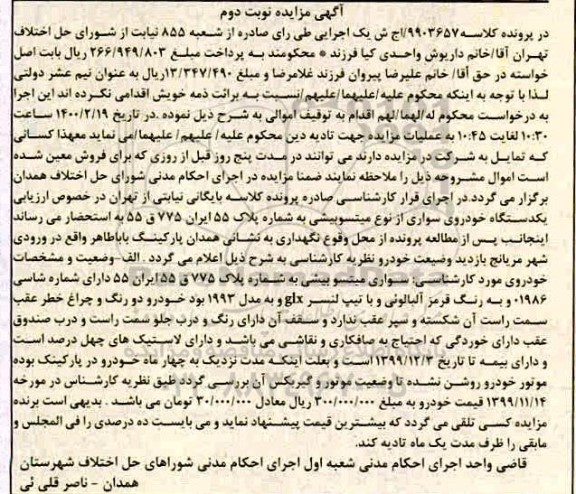 آگهی مزایده نوبت دوم
در پرونده کلاسه۹۹۰۳۶۵۷/اج ش یک اجرایی طی رای صادره از شعبه ۸۵۵ نیابت از شورای حل اختلاف
تهران آقا/خانم داریوش واحدی کیا فرزند * محکومند به پرداخت مبلغ ۲۶۶/۹۴۹/۸۰۳ ریال بابت اصل
خواسته در حق آقا/ خانم علیرضا پیروان فرزند غلامرضا و مبلغ ۱۳/۳۴۷/۴۹۰ریال به عنوان نیم عشر دولتی
لذا با توجه به اینکه محکوم علیه/علیهما/علیهم/نسبت به برائت ذمه خویش اقدامی نکرده اند این اجرا
به درخواست محکوم له/لهما/لهم اقدام به توقیف اموالی به شرح ذیل نموده .در تاریخ ۱۴۰۰/۲/۱۹ ساعت
۱۰:۳۰ لغایت ۱۰:۴۵ به عملیات مزایده جهت تادیه دین محکوم علیه/ علیهم/ علیهما/می نماید معهذا کسانی
که تمایل به شرکت در مزایده دارند می توانند در مدت پنج روز قبل از روزی که برای فروش معین شده
است اموال مشروحه ذیل را ملاحظه نمایند ضمنا مزایده در اجرای احکام مدنی شورای حل اختلاف همدان
برگزار می گردد.در اجرای قرار کارشناسی صادره پرونده کلاسه بایگانی نیابتی از تهران در خصوص ارزیابی
یکدستگاه خودروی سواری از نوع میتسوبیشی به شماره پلاک ۵۵ ایران ۷۷۵ ق ۵۵ به استحضار می رساند
اینجانب پس از مطالعه پرونده از محل وقوع نگهداری به نشانی همدان پارکینگ باباطاهر واقع در ورودی
شهر مریانج بازدید وضیعت خودرو نظریه کارشناسی به شرح ذیل اعلام می گردد . الف-وضعیت و مشخصات
خودروی مورد کارشناسی: سواری میتسو بیشی به شماره پلاک ۷۷۵ ق ۵۵ ایران ۵۵ دارای شماره شاسی
۰۱۹۸۶ و به رنگ قرمز آلبالوئی و با تیپ لنسر glx و به مدل ۱۹۹۳ بود خودرو دو رنگ و چراغ خطر عقب
سمت راست آن شکسته و سپر عقب ندارد و سقف آن دارای رنگ و درب جلو سمت راست و درب صندوق
عقب دارای خوردگی که احتیاج به صافکاری و نقاشی می باشد و دارای لاستیک های چهل درصد است
و دارای بیمه تا تاریخ ۱۳۹۹/۱۲/۳ است و بعلت اینکه مدت نزدیک به چهار ماه خودرو در پارکینک بوده
موتور خودرو روشن نشده تا وضعیت موتور و گیربکس آن بررسی گردد طبق نظریه کارشناس در مورخه
۱۳۹۹/۱۱/۱۴ قیمت خودرو به مبلغ ۳۰۰/۰۰۰/۰۰۰ ریال معادل ۳۰/۰۰۰/۰۰۰ تومان می باشد . بدیهی است برنده
مزایده کسی تلقی می گردد که بیشترین قیمت پیشنهاد نماید و می بایست ده درصدی را فی المجلس و
مابقی را ظرف مدت یک ماه تادیه کند.
قاضی واحد اجرای احکام مدنی شعبه اول اجرای احکام مدنی شوراهای حل اختلاف شهرستان
همدان - ناصر قلی ئی